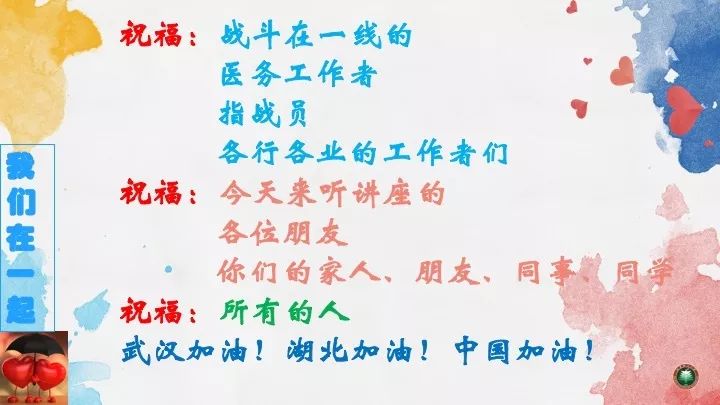 祝福：战斗在一线的
医务工作者
指战员
各行各业的工作者们
祝福：今天来听讲座的
各位朋友
你们的家人、朋友、同事、同学
祝福：所有的人
武汉加油！湖北加油！中国加油！
我们在一起